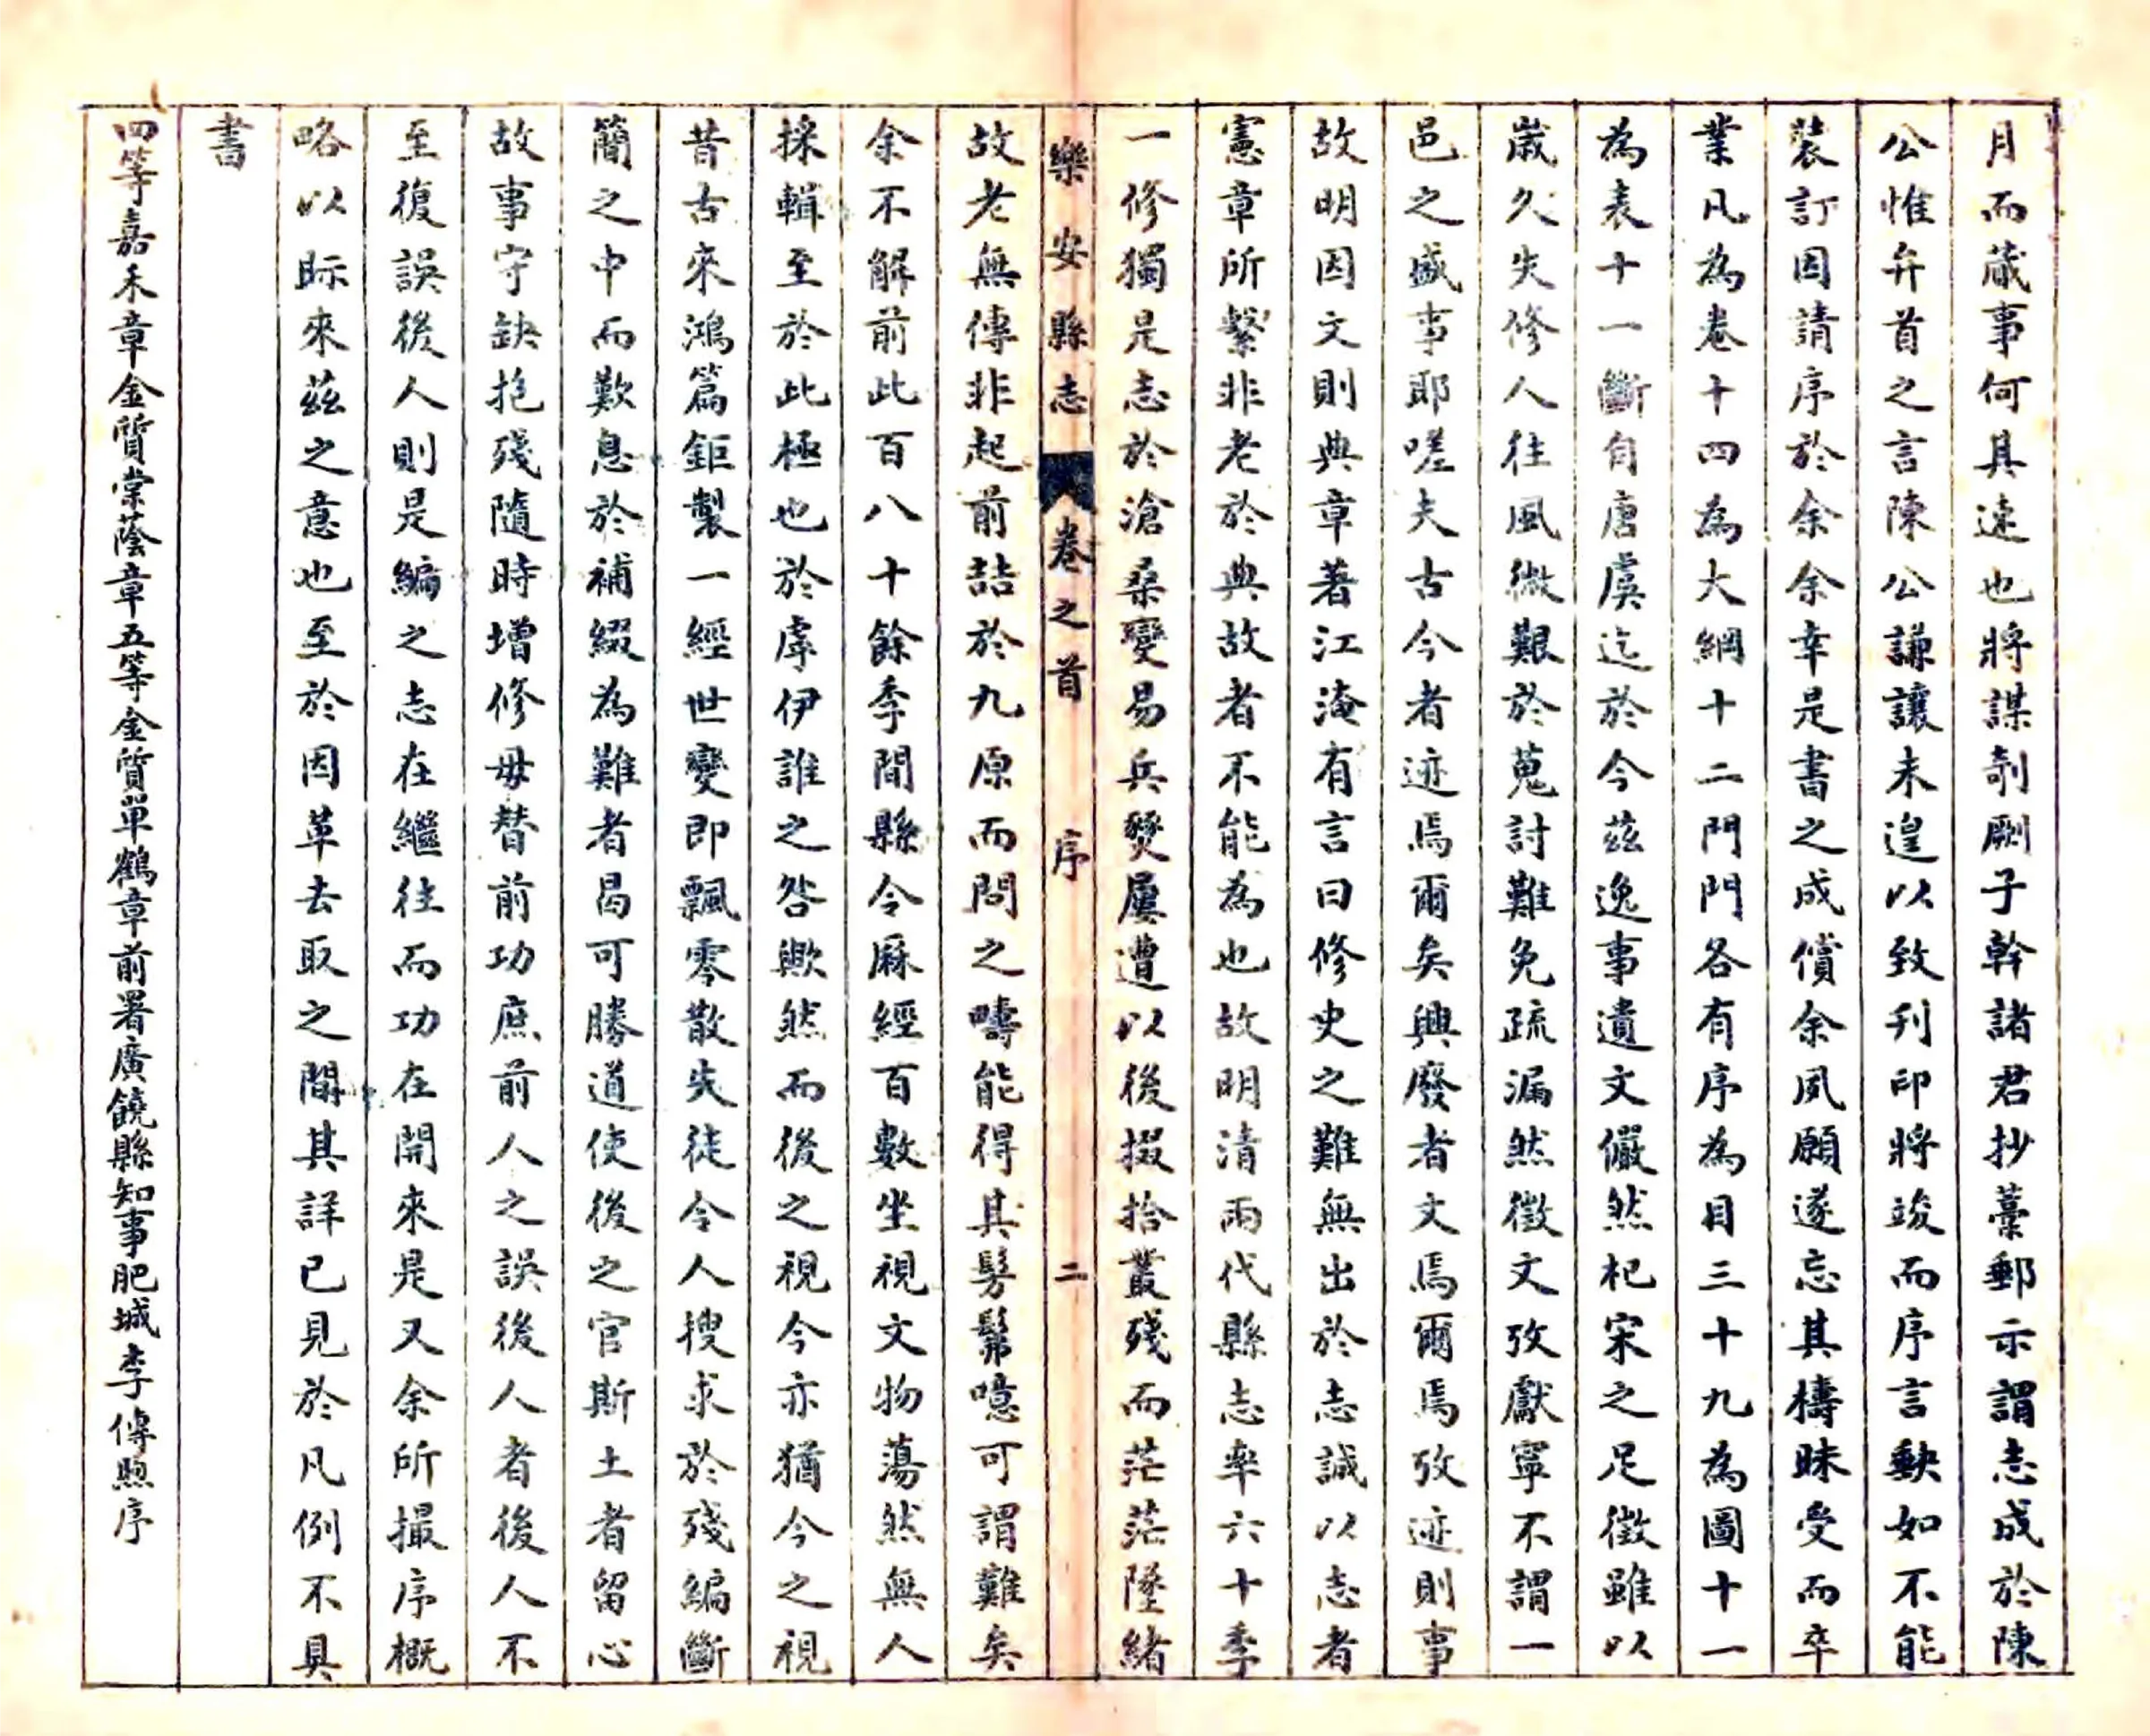 月而蕆事何其速也將謀剞劂子幹諸君抄藁郵示謂志成於陳
公惟弁首之言陳公謙讓未遑以致刊印將竣而序言缺如不能
裝訂因請序於余余幸是書之成償余夙願遂忘其檮昧受而卒
業凡為卷十四為大綱十二門門各有序為目三十九為圖十一
為表十一斷自唐虞迄於今茲逸事遺文儼然杞宋之足徵雖以
歲久失修人往風微艱於蒐討難免疏漏然徵文攷獻寧不謂一
邑之盛事耶嗟夫古今者迹焉爾矣興廢者文焉爾焉攷迹則事
故明因文則典章著江淹有言曰修史之難無出於志誠以志者
憲章所繫非老於典故者不能為也故明清兩代縣志率六十季
一修獨是志於滄桑變易兵燹屢遭以後掇拾叢殘而茫茫墜緒
樂安縣志 卷之首 序 二
故老無傳非起前喆於九原而問之疇能得其髣髴噫可謂難矣
余不解前此百八十餘季間縣令厤經百數坐視文物蕩然無人
採輯至於此極也於虖伊誰之咎歟然而後之視今亦猶今之視
昔古來鴻篇鉅製一經世變即飄零散失徒令人搜求於殘編斷
簡之中而歎息於補綴為難者曷可勝道使後之官斯土者留心
故事守缺抱殘隨時增修毋替前功庶前人之誤後人者後人不
至復誤後人則是編之志在繼往而功在開來是又余所撮序概
略以眎來茲之意也至於因革去取之間其詳已見於凡例不具
書
四等嘉禾章金質棠蔭章五等金質單鶴章前署廣饒縣知事肥城李傳煦序